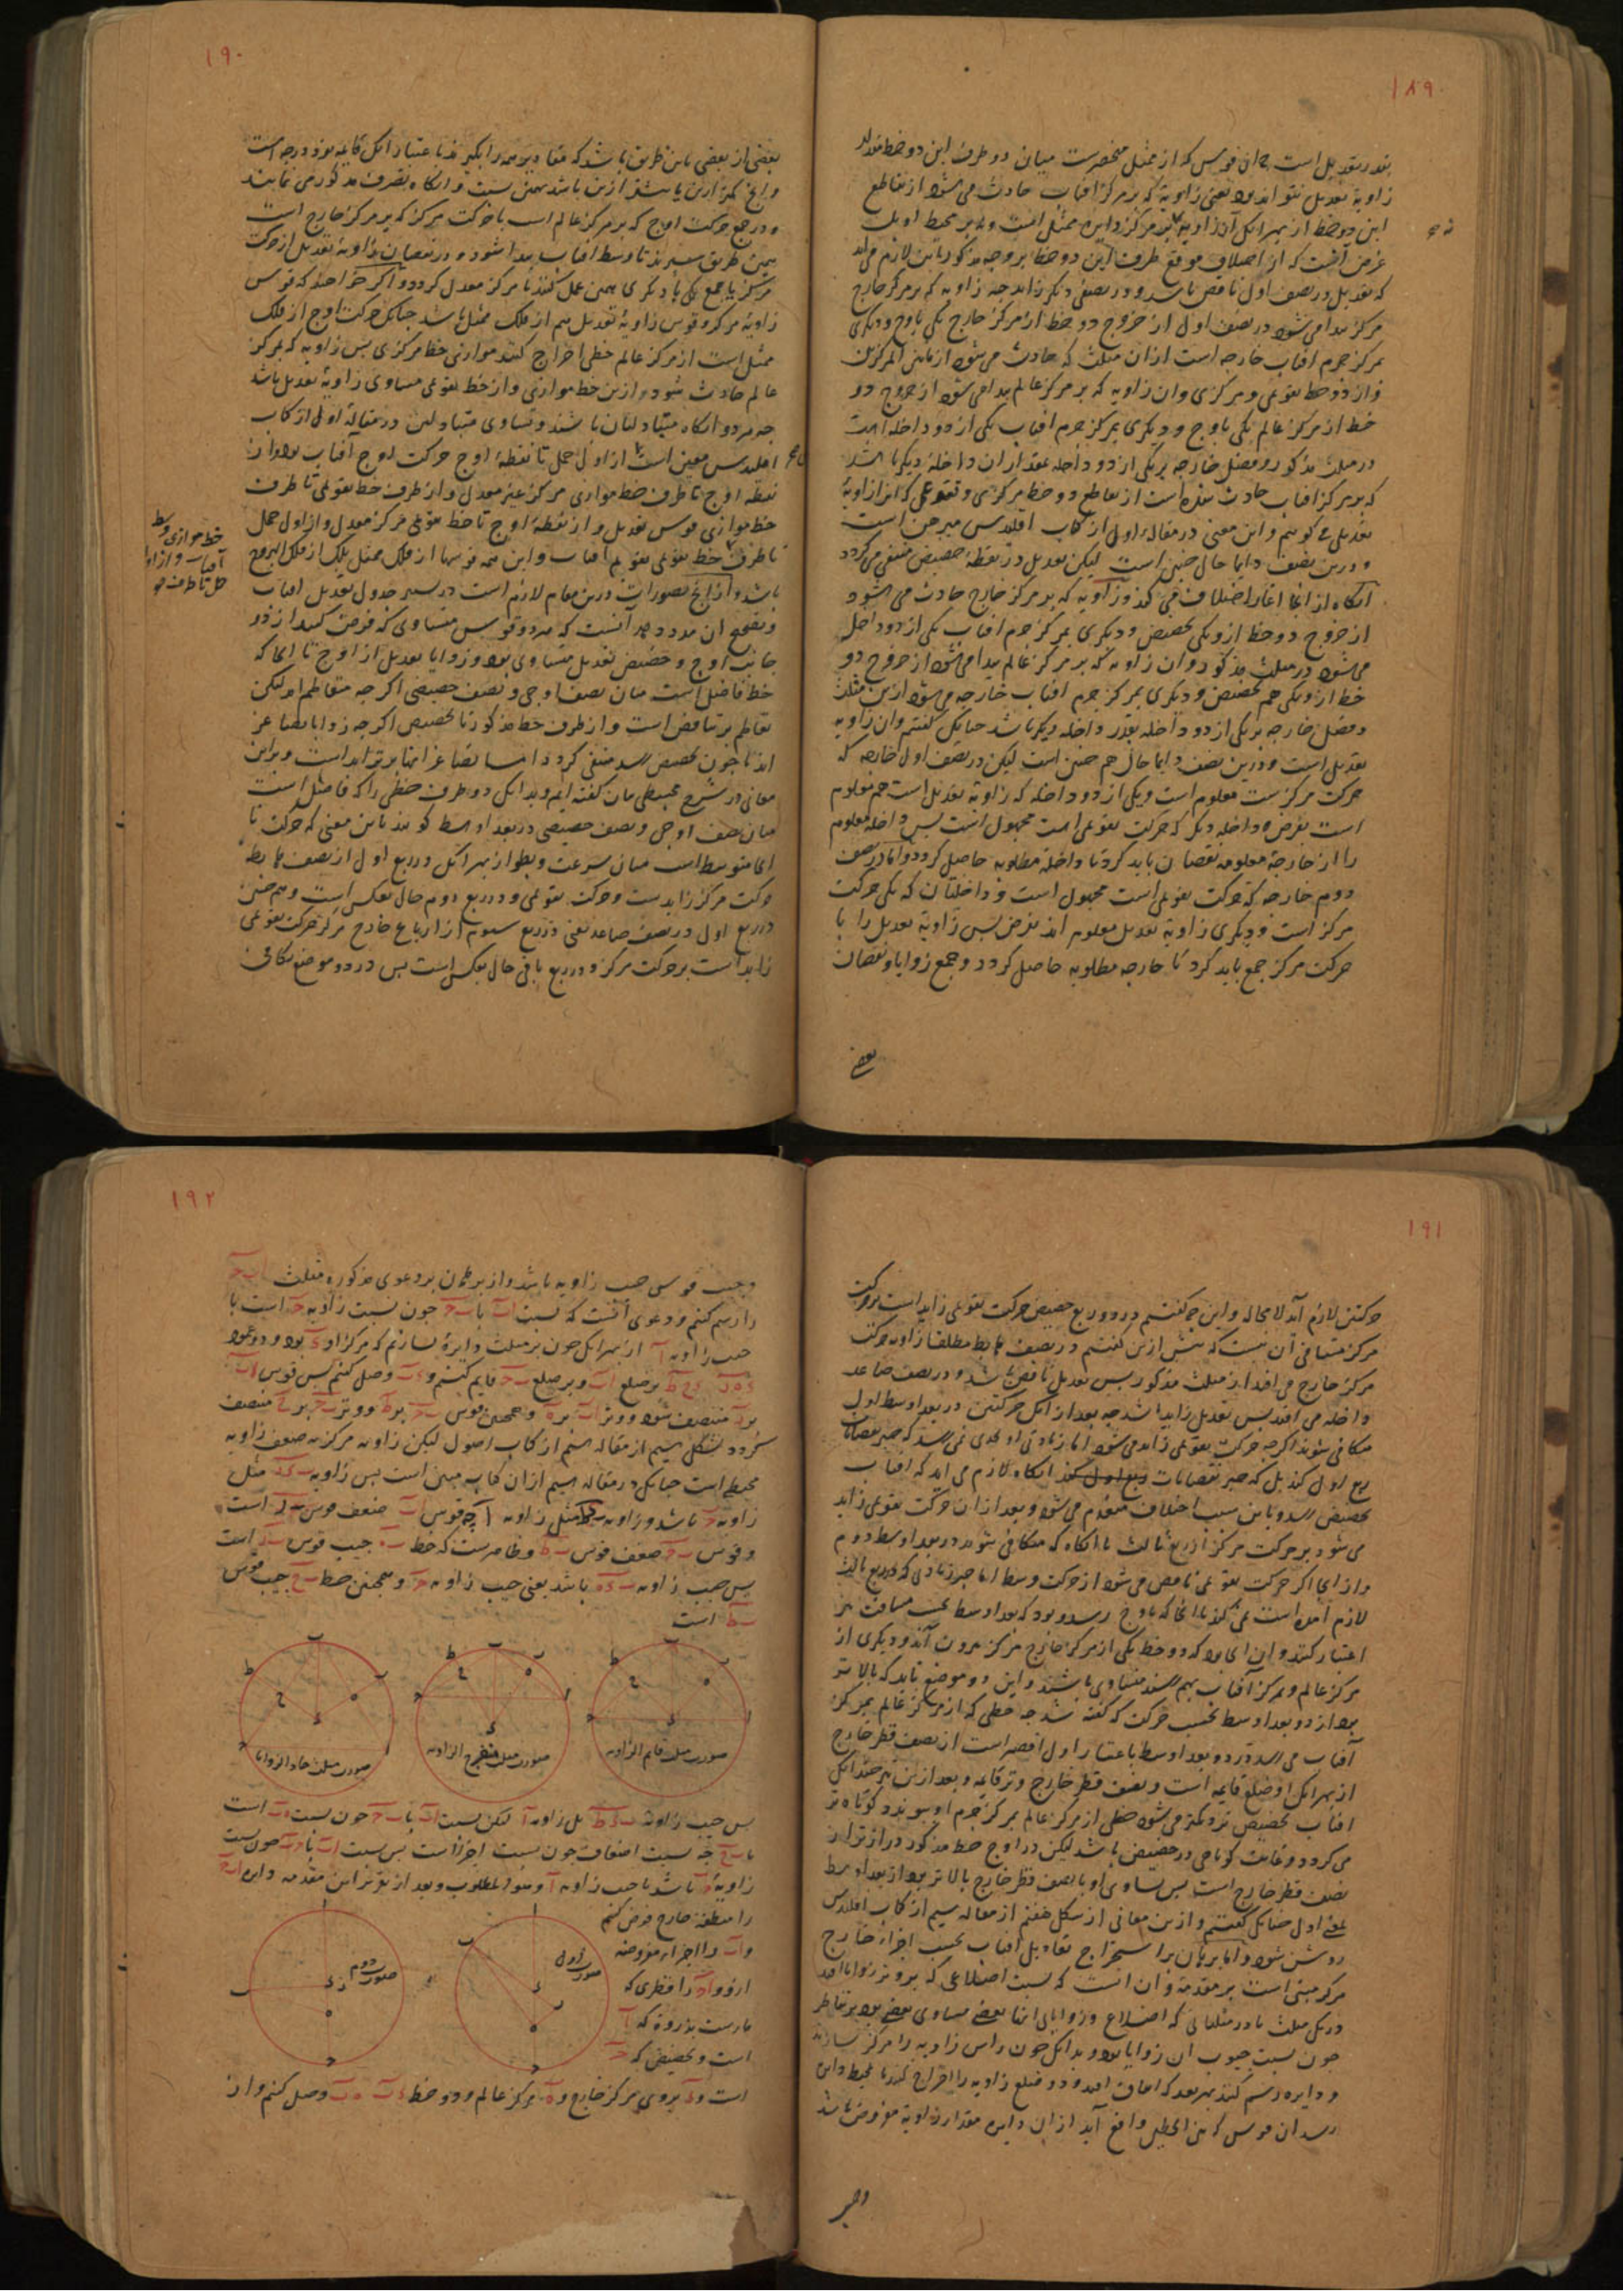 ۱۸۹
زاویهٔ تعدیل نتواند بود یعنی زاویهٔ که بر مرکز آفتاب حادث می شود از تقاطع
این دو خط از بهر آنکه آن زاویه بر مرکز دایره ممثل است و نه بر محیط او بل
غرض آنست که از اختلاف موقع طرف این دو خط بر وجه مذکور باین لازم می آید
که تعدیل در نصف اول ناقص باشد و در نصف دیگر زاید چه زاویه که بر مرکز خارج
مرکز پیدا می شود در نصف اول از خروج دو خط از مرکز خارج یکی باوج و دیگری
بمرکز جرم آفتاب خارجه است ازان مثلث که حادث می شود از مابین المرکزین
و از دو خط تقویمی و مرکزی و ان زاویه که بر مرکز عالم پیدا می شود از خروج دو
خط از مرکز عالم یکی باوج و دیگری بمرکز جرم آفتاب یکی از دو داخله است
در مثلث مذکور و فضل خارجه بر یکی از دو داخله بمقدار ان داخلهٔ دیگر باشد
که بر مرکز آفتاب حادث شده است از تقاطع دو خط مرکزی و تقویمی که انرا زاویهٔ
تعدیلی گوییم و این معنی در مقالهٔ اول از کتاب اقلیدس مبرهن است
و درین نصف دایما حال چنین است لیکن تعدیل در نقطهٔ حضیض منتفی می گردد
از خروج دو خط ازو یکی بحضیض و دیگری بمرکز جرم آفتاب یکی از دو داخل
می شود در مثلث مذکور و ان زاویه که بر مرکز عالم پیدا می شود از خروج دو
خط ازو یکی هم بحضیض و دیگری بمرکز جرم آفتاب خارجه می شود ازین مثلث
و فضل خارجه بر یکی از دو داخله بقدر داخله دیگر باشد چنانکه گفتیم و ان زاویه
تعدیل است و درین نصف دایما حال هم چنین است لیکن در نصف اول خارجه که
حرکت مرکزست معلوم است و یکی از دو داخله که زاویهٔ تعدیل است هم معلوم
است بفرض و داخله دیگر که حرکت تقویمی است مجهول است پس داخله معلوم
را از خارجهٔ معلومه نقصان باید کرد تا داخلهٔ مطلوبه حاصل گردد و اما در نصف
دوم خارجه که حرکت تقویمی است مجهول است و داخلتان که یکی حرکت
مرکز است و دیگری زاویهٔ تعدیل معلوم اند بفرض پس زاویهٔ تعدیل را با
حرکت مرکز جمع باید کرد تا خارجه مطلوبه حاصل گردد و جمع زوایا و نقصان
بعضی
۱۹۰
بعضی از بعضی باین طریق باشد که مقادیر همه را بگیرند باعتبار آنکه قایمه نود درجه است
و در جمع حرکت اوج که بر مرکز عالم است با حرکت مرکز که بر مرکز خارج است
همین طریق سپرند تا وسط آفتاب پیدا شود و در نقصان زاویهٔ تعدیل از حرکت
مرکز یا جمع یکی با دیگری همین عمل کنند تا مرکز معدل گردد و اگر خواهند که قوس
زاویهٔ مرکز و قوس زاویهٔ تعدیل هم از فلک ممثل باشد چنانکه حرکت اوج از فلک
ممثل است از مرکز عالم خطی اخراج کنند موازی خط مرکزی پس زاویه که بمرکز
عالم حادث شود ازین خط موازی و از خط تقویمی مساوی زاویهٔ تعدیل باشد
چه هر دو انگاه متبادلتان باشند و تساوی متبادلتین در مقالهٔ اول از کتاب
اقلیدس مبین است از اول حمل تا نقطهٔ اوج حرکت اوج آفتاب بود و از
نقطه اوج تا طرف خط موازی مرکز غیر معدل و از طرف خط تقویمی تا طرف
خط موازی قوس تعدیل و از نقطهٔ اوج تا خط تقویمی مرکز معدل و از اول حمل
تا طرف خط تقویمی تقویم آفتاب و این همه قوسها از فلک ممثل بلک از فلک البروج
خط موازی وسط
آفتاب و از اول
حمل تا طرف
جانب اوج و حضیض تعدیل متساوی بود و زوایا تعدیل از اوج تا انجا که
خط فاضل است میان نصف اوجی و نصف حضیضی اگر چه متعاظم اند لیکن
تعاظم بر تناقض است و از طرف خط مذکور تا بحضیض اگر چه زوایا متصاغر
معانی در شرح مجسطی مان گفته ایم و بدانکه دو طرف خطی را که فاضل است
میان نصف اوجی و نصف حضیضی در بعد اوسط گویند باین معنی که حرکت تا
انجا متوسط است میان سرعت و بطؤ از بهر آنکه در ربع اول از نصف هابط
حرکت مرکز زایدست و حرکت تقویمی و در ربع دوم حال بعکس است و هم چنین
در ربع اول در نصف صاعد یعنی در ربع سیوم از ارباع خارج مرکز حرکت تقویمی
زاید است بر حرکت مرکز و در ربع باقی حال بعکس است پس در دو موضع تکافئ
۱۹۱
حرکتین لازم آید لا محاله و این چه گفتیم در دو ربع حضیض حرکت تقویمی زاید است بر حرکت
مرکز منافی آن نیست که پیش ازین گفتیم در نصف هابط مطلقا زاویه حرکت
مرکز خارج می افتد از مثلث مذکور پس تعدیل ناقص باشد و در نصف صاعد
داخله می افتد پس تعدیل زاید باشد چه بعد از آنکه حرکتین در بعد اوسط اول
متکافی شوند اگر چه حرکت تقویمی زاید می شود اما زیادتی او بحدی نمی رسد که جبر نقصانات
ربع اول کند بل که جبر نقصانات انگاه لازم می آید که آفتاب
بحضیض رسد و باین سبب اختلاف منعدم می شود و بعد از ان حرکت تقویمی زاید
می شود بر حرکت مرکز از ربع ثالث تا انگاه که متکافی شوند در بعد اوسط دوم
و از انجا اگر حرکت تقویمی ناقص می شود از حرکت وسط اما جبر زیادتی که در ربع ثالث
لازم آمده است نمی کند تا انجا که باوج رسد و بود که بعد اوسط بحسب مسافت نیز
اعتبار کنند و ان انجا بود که دو خط یکی از مرکز خارج مرکز بیرون آید و دیگری از
مرکز عالم و بمرکز آفتاب بهم رسند متساوی باشند و این دو موضع باید که بالاتر
بود از دو بعد اوسط بحسب حرکت که گفته شد چه خطی که از مرکز عالم بمرکز
آفتاب می رسد در دو بعد اوسط باعتبار اول اقصر است از نصف قطر خارج
از بهر آنکه او ضلع قایمه است و نصف قطر خارج وتر قایمه و بعد ازین نیز چندانکه
آفتاب بحضیض نزدیکتر می شود خطی از مرکز عالم بمرکز جرم او پیوندد کوتاه تر
می گردد و غایت کوتاهی در حضیض باشد لیکن در اوج خط مذکور دراز تر از
نصف قطر خارج است پس تساوی او با نصف قطر خارج بالاتر بود از بعد اوسط
بمعنی اول چنانکه گفتیم و ازین معانی از شکل هفتم از مقاله سیم از کتاب اقلیدس
روشن شود و اما برهان بر استخراج تعادیل آفتاب بحسب اجزاء خارج
مرکز مبنی است بر مقدمه و ان آنست که نسبت اضلاعی که بر وتر زوایا افتد
در یک مثلث یا در مثلثاتی که اضلاع و زوایای انها بعضی مساوی بعضی بود بر تناظر
چون نسبت جیوب ان زوایا بود و بدانکه چون راس زاویه را مرکز سازند
و دایره رسم کنند بهر بعد که اتفاق افتد و دو ضلع زاویه را اخراج کنند تا بمحیط دایره
رسد ان قوس که بین الخطین واقع آید از ان دایره مقدار زاویهٔ مفروض باشد
وجیب
۱۹۲
وجیب قوسی جیب زاویه باشد و از بهر برهان بر دعوی مذکوره مثلث ا ب ج
را رسم کنیم و دعوی آنست که نسبت ا ب با ب ج چون نسبت زاویه ج است با
جیب زاویه ا از بهر آنکه چون بر مثلث دایرهٔ سازیم که مرکز او ء بود و دو عمود
ء ه ر ء ح ط بر ضلع ا ب و بر ضلع ب ج قایم کنیم و ء ب وصل کنیم پس قوس ا ب
بر ر منتصف شود و وتر ا ب بر ه و همچنین قوس ب ج بر ط و وتر ب ج بر ح منتصف
گردد بشکل سیم از مقاله سیم از کتاب اصول لیکن زاویه مرکز به ضعف زاویه
محیط است چنانکه در مقاله سیم ازان کتاب مبین است پس زاویه ب ء ر مثل
و قوس ب ج ضعف قوس ب ط و ظاهرست که خط ب ه جیب قوس ب ر است
پس جیب زاویه ب ء ه باشد یعنی جیب زاویه ج و همچنین خط ب ح جیب قوس
ب ط است
صورت مثلث قایم الزاویه
صورت مثلث منفرج الزاویه
صورت مثلث حاد الزوایا
با ب ح چه نسبت اضعاف چون نسبت اجزا است پس نسبت ا ب با ب ج چون نسبت
زاویهٔ ج باشد با جیب زاویه ا و هو المطلوب و بعد از تقریر این مقدمه دایره ا ب ج
را منطقهٔ خارج فرض کنیم
و ا ب را اجزاء مفروضه
ازو و ا ج را قطری که
مارست بذروه که ا
است و بحضیض که ج
است و ء بروی مرکز خارج و ه مرکز عالم و دو خط ء ب ه ب وصل کنیم و از
صورت اول
صورت دوم